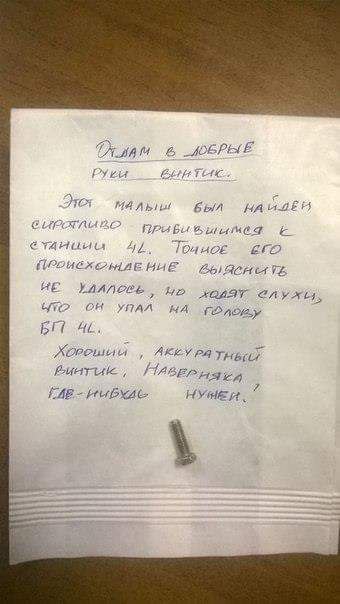 Отдам в добрые
руки винтик.
Этот малыш был найден
сиротливо прибившимся к
станции 4L. Точное его
происхождение выяснить
не удалось, но ходят слухи,
что он упал на голову
БП 4L.
Хороший, аккуратный
винтик. Наверняка
где-нибудь нужен!